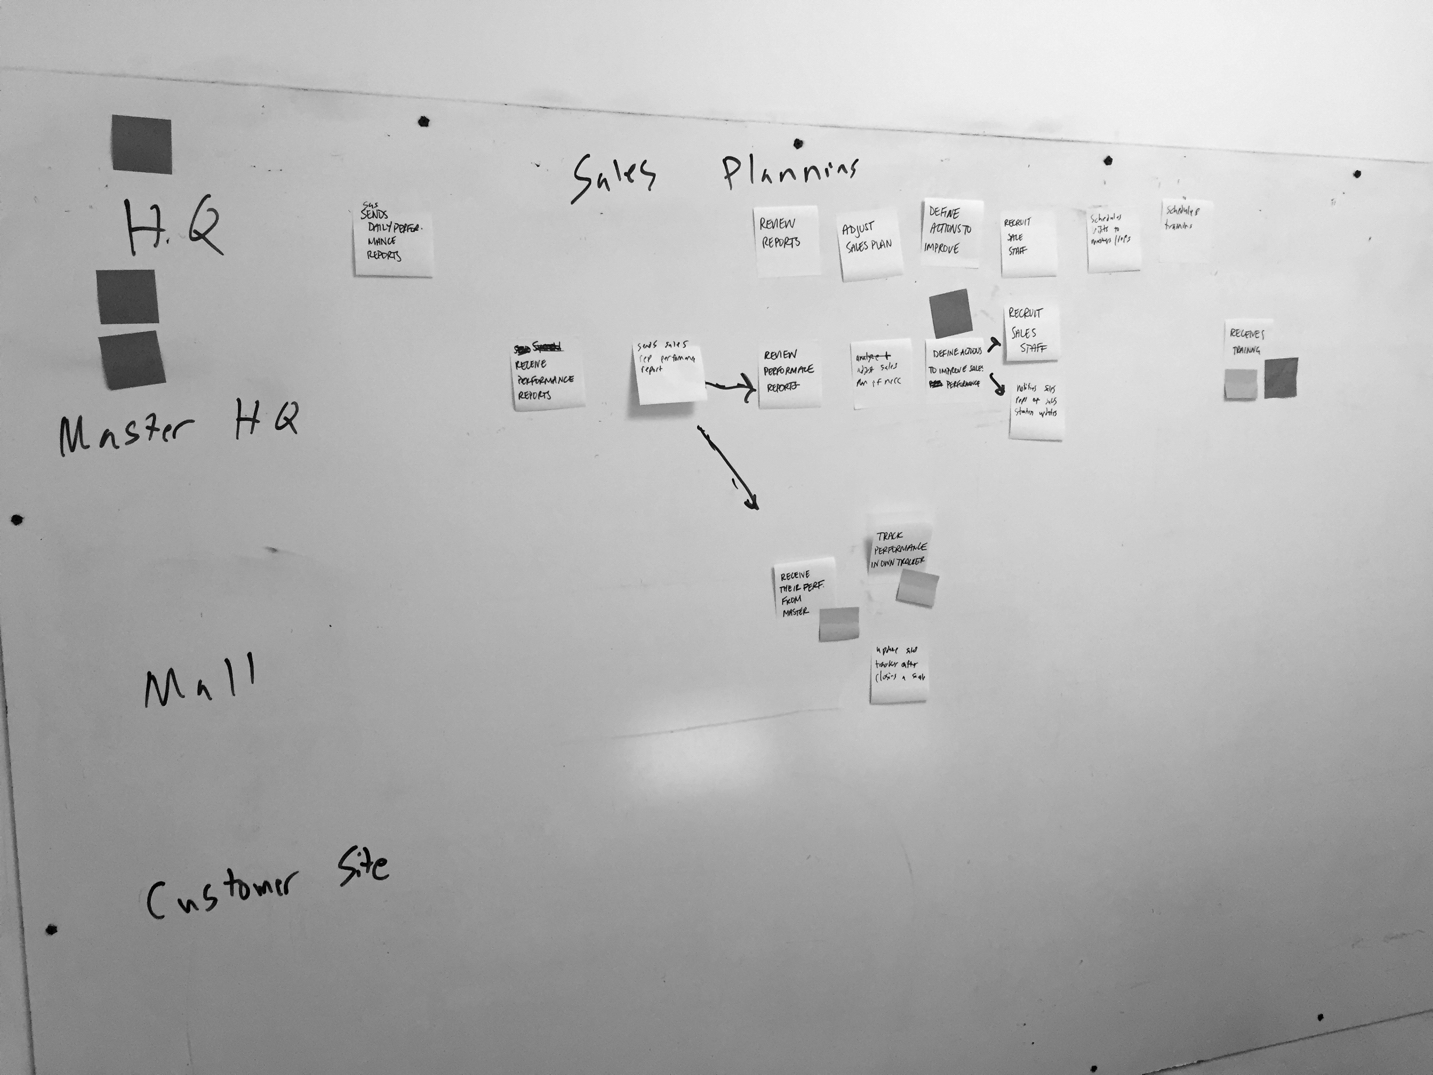 Sales Planning
H.Q
SENDS
DAILY PERFOR-
MANCE
REPORTS
REVIEW
REPORTS
ADJUST
SALES PLAN
DEFINE
ACTIONS TO
IMPROVE
RECRUIT
SALE
STAFF
Schedules
visits to
Schedules
training
Master HQ
RECEIVE
PERFORMANCE
REPORTS
sends sales
rep performing
report
REVIEW
PERFORMACE
REPORTS
adjust sales
plan if necc
DEFINE ACTIONS
TO IMPROVE SALES
PERFORMANCE
RECRUIT
SALES
STAFF
notifies sales
reps of sales
status updates
RECEIVES
TRAINING
Mall
RECEIVE
THEIR PERF.
FROM
MASTER
TRACK
PERFORMANCE
IN OWN TRACKER
update
tracker after
closing a sale
Customer Site